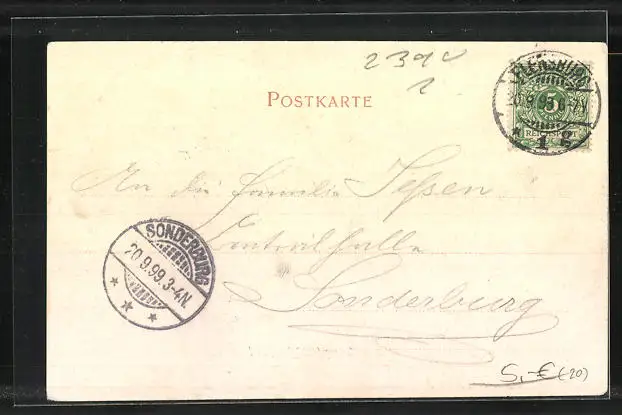 239
POSTKARTE
FLENSBURG
20.9.99. 6-7V.
* 1 g
5
REICHSPOST
An die Familie Jessen
Centralhalle
Sonderburg
SONDERBURG
20.9.99.3-4N.
* * *
5,-€ (20)